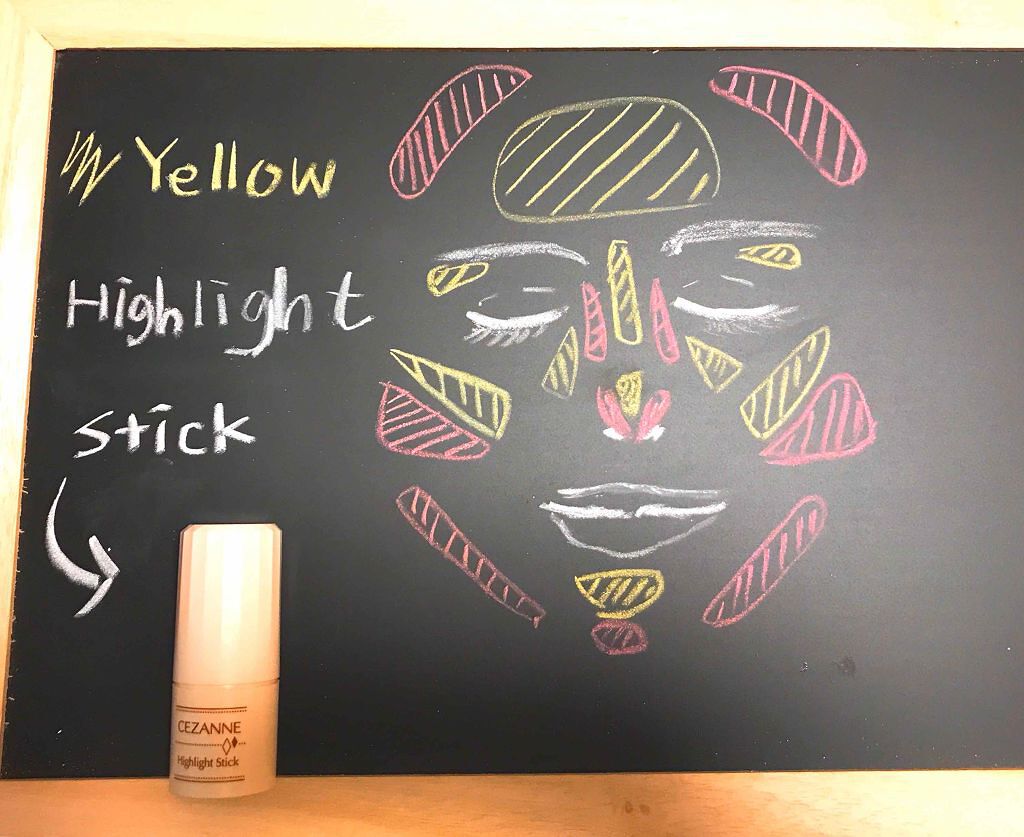 Yellow
Highlight
stick
CEZANNE
Highlight Stick